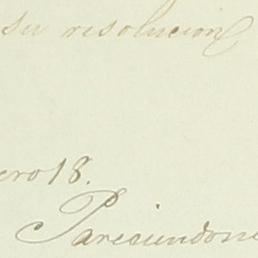 su resolucion
ero 18.
Pareciendome